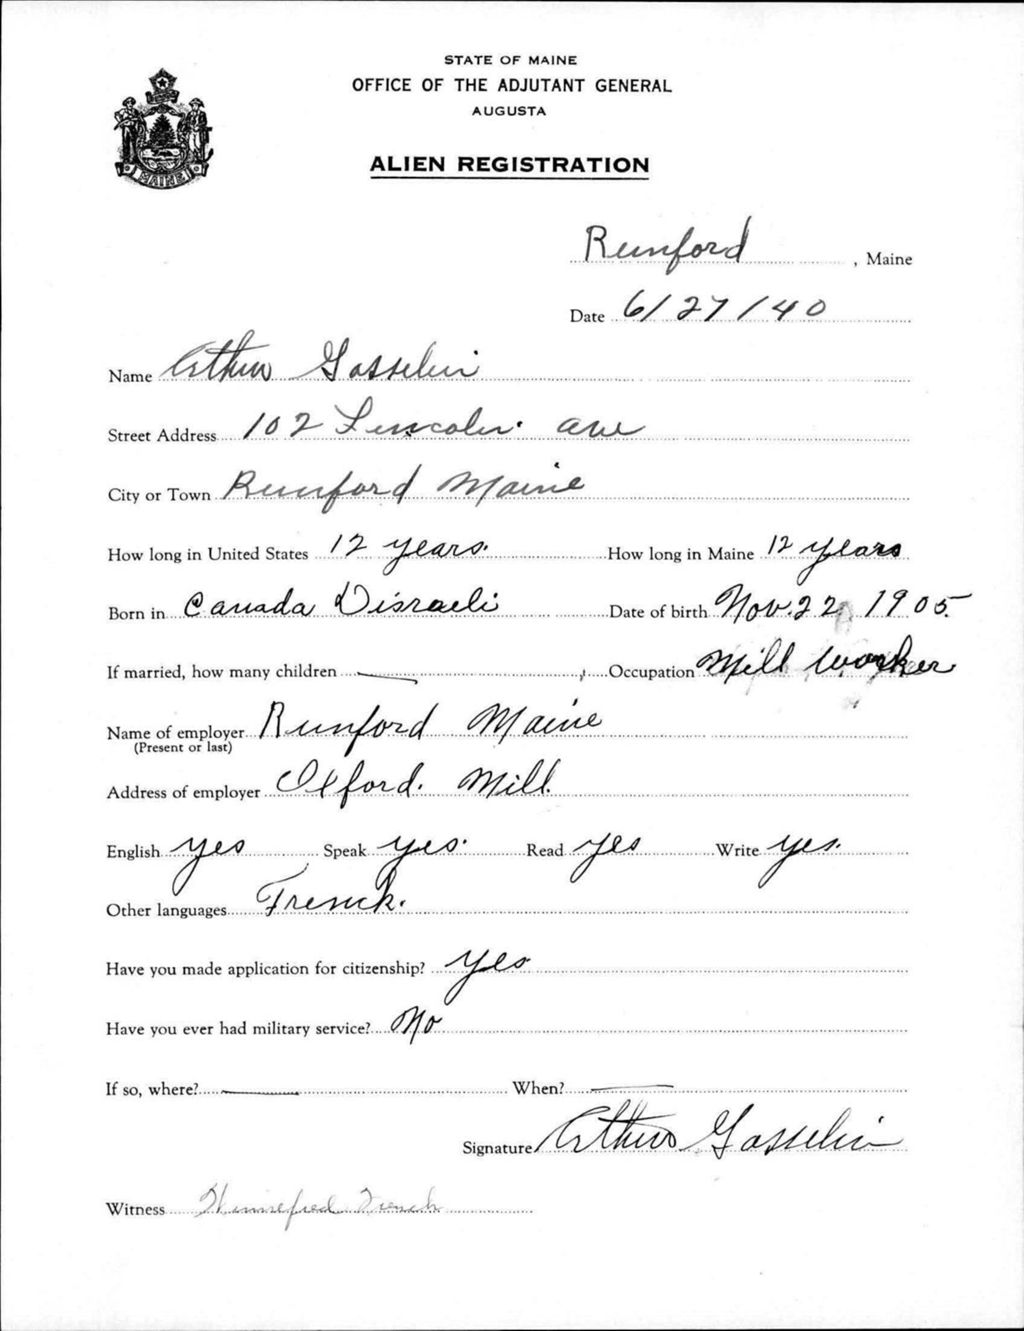 STATE OF MAINE
OFFICE OF THE ADJUTANT GENERAL
AUGUSTA
MAINE
ALIEN REGISTRATION
Rumford, Maine
Date 6/27/40
Name Arthur Gosselin
Street Address 102 Lincoln. ave
City or Town Rumford Maine
How long in United States 12 years. How long in Maine 12 years
Born in Canada Disraeli Date of birth Nov. 22 1905.
If married, how many children Occupation Mill worker
Name of employer Rumford Maine
(Present or last)
Address of employer Oxford. Mill.
English yes Speak yes. Read yes Write yes.
Other languages French.
Have you made application for citizenship? yes
Have you ever had military service? No
If so, where? When?
Signature Arthur Gosselin
Witness Winnefred French